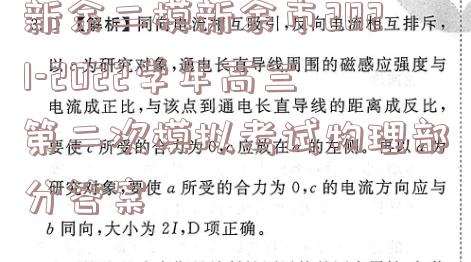 新余二模新余市202
1-2022学年高三
第二次模拟考试物理部
分答案
【解析】同向电流相互吸引,反向电流相互排斥,
以 为研究对象,通电长直导线周围的磁感应强度与
电流成正比,与该点到通电长直导线的距离成反比,
要使c所受的合力为0,c应放在 的左侧。再以a为
研究对象,要使a所受的合力为0,c的电流方向应与
b同向,大小为2I,D项正确。